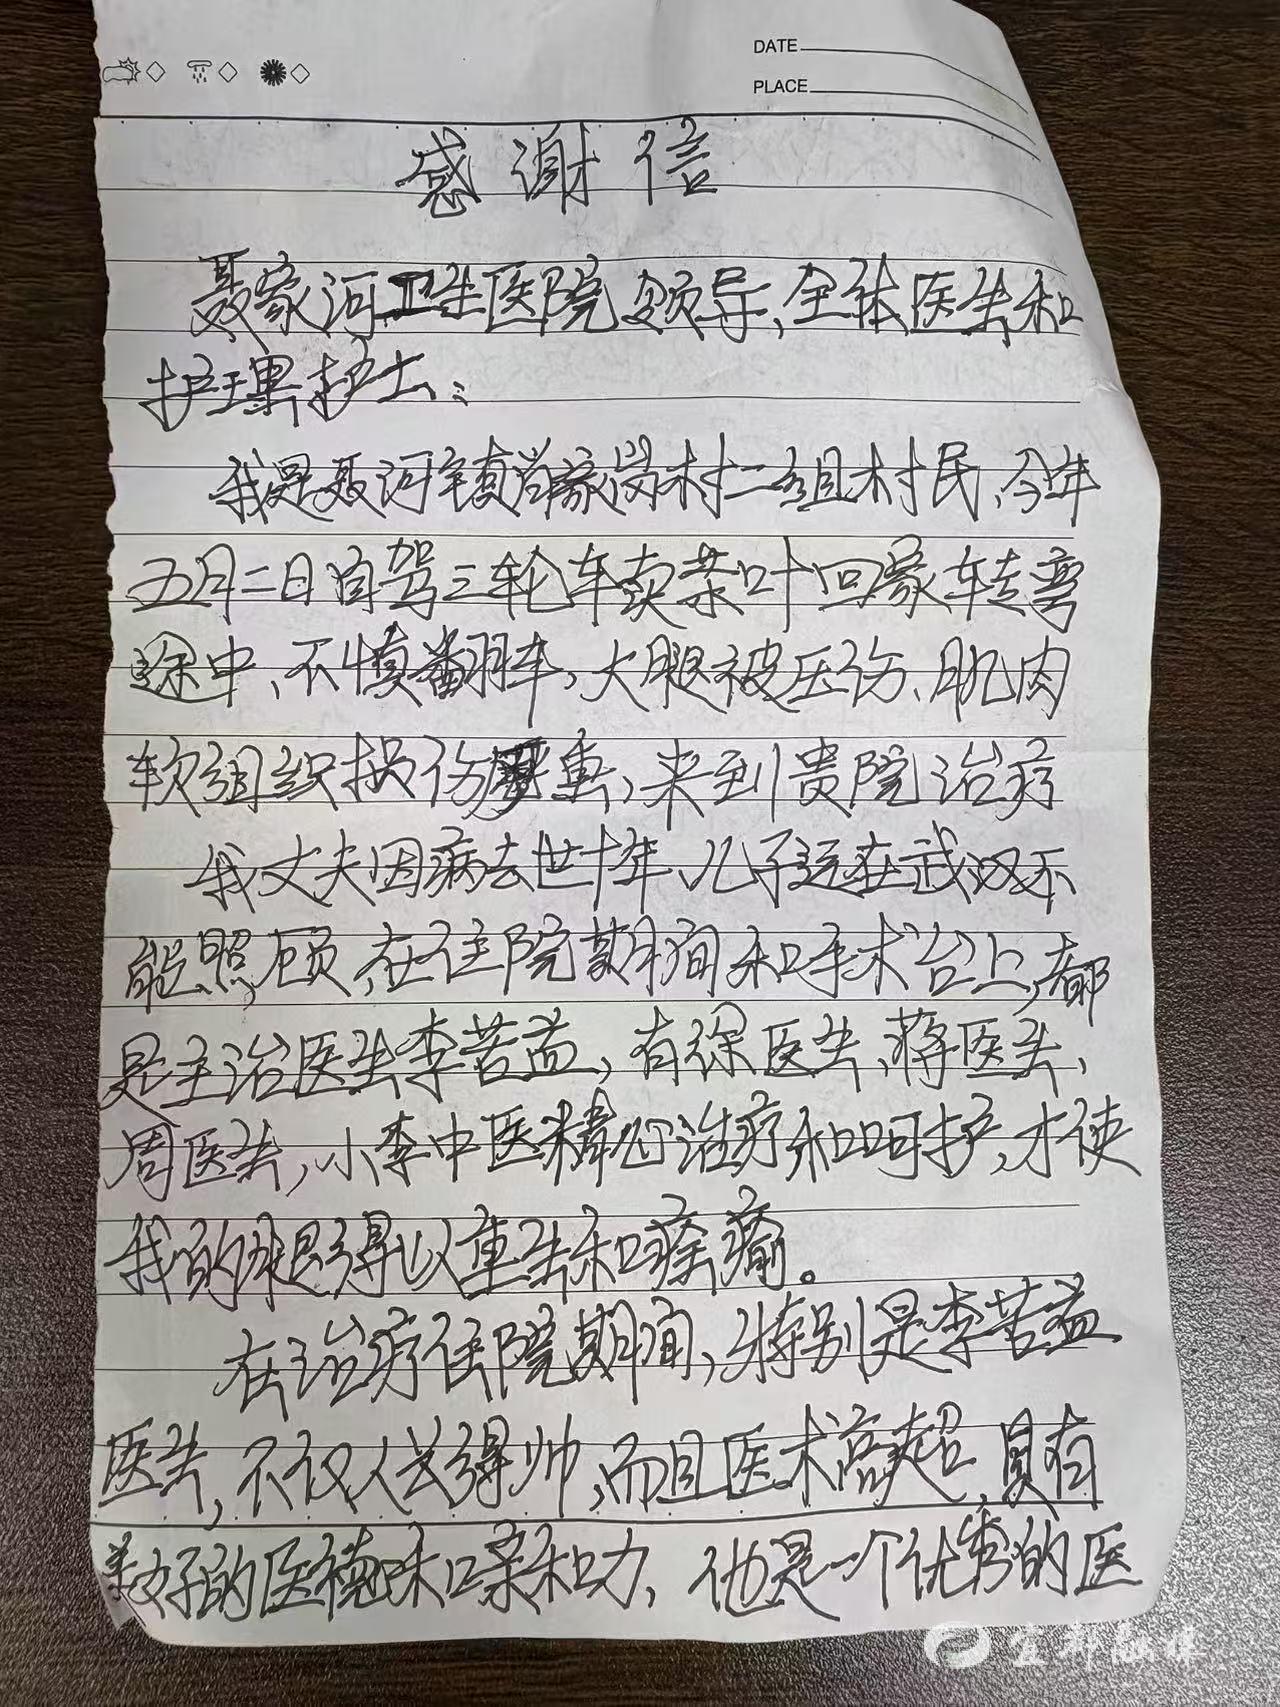 DATE
PLACE
感谢信
聂家河卫生医院领导、全体医生和
护理护士:
我是聂河镇肖家岗村二组村民,今年
五月二日自驾三轮车卖茶叶回家车转弯
途中,不慎翻车,大腿被压伤、肌肉
软组织损伤严重,来到贵院治疗
我丈夫因病去世十年、儿子远在武汉不
能照顾,在住院期间和手术台上,都
是主治医生李苦益,有徐医生、蒋医生、
周医生,小李中医精心治疗和呵护,才使
我的腿得以重生和痊瘉。
在治疗住院期间,特别是李苦益
医生,不仅人长得帅,而且医术高超,具有
美好的医德和亲和力,他是一个优秀的医
宜都融媒